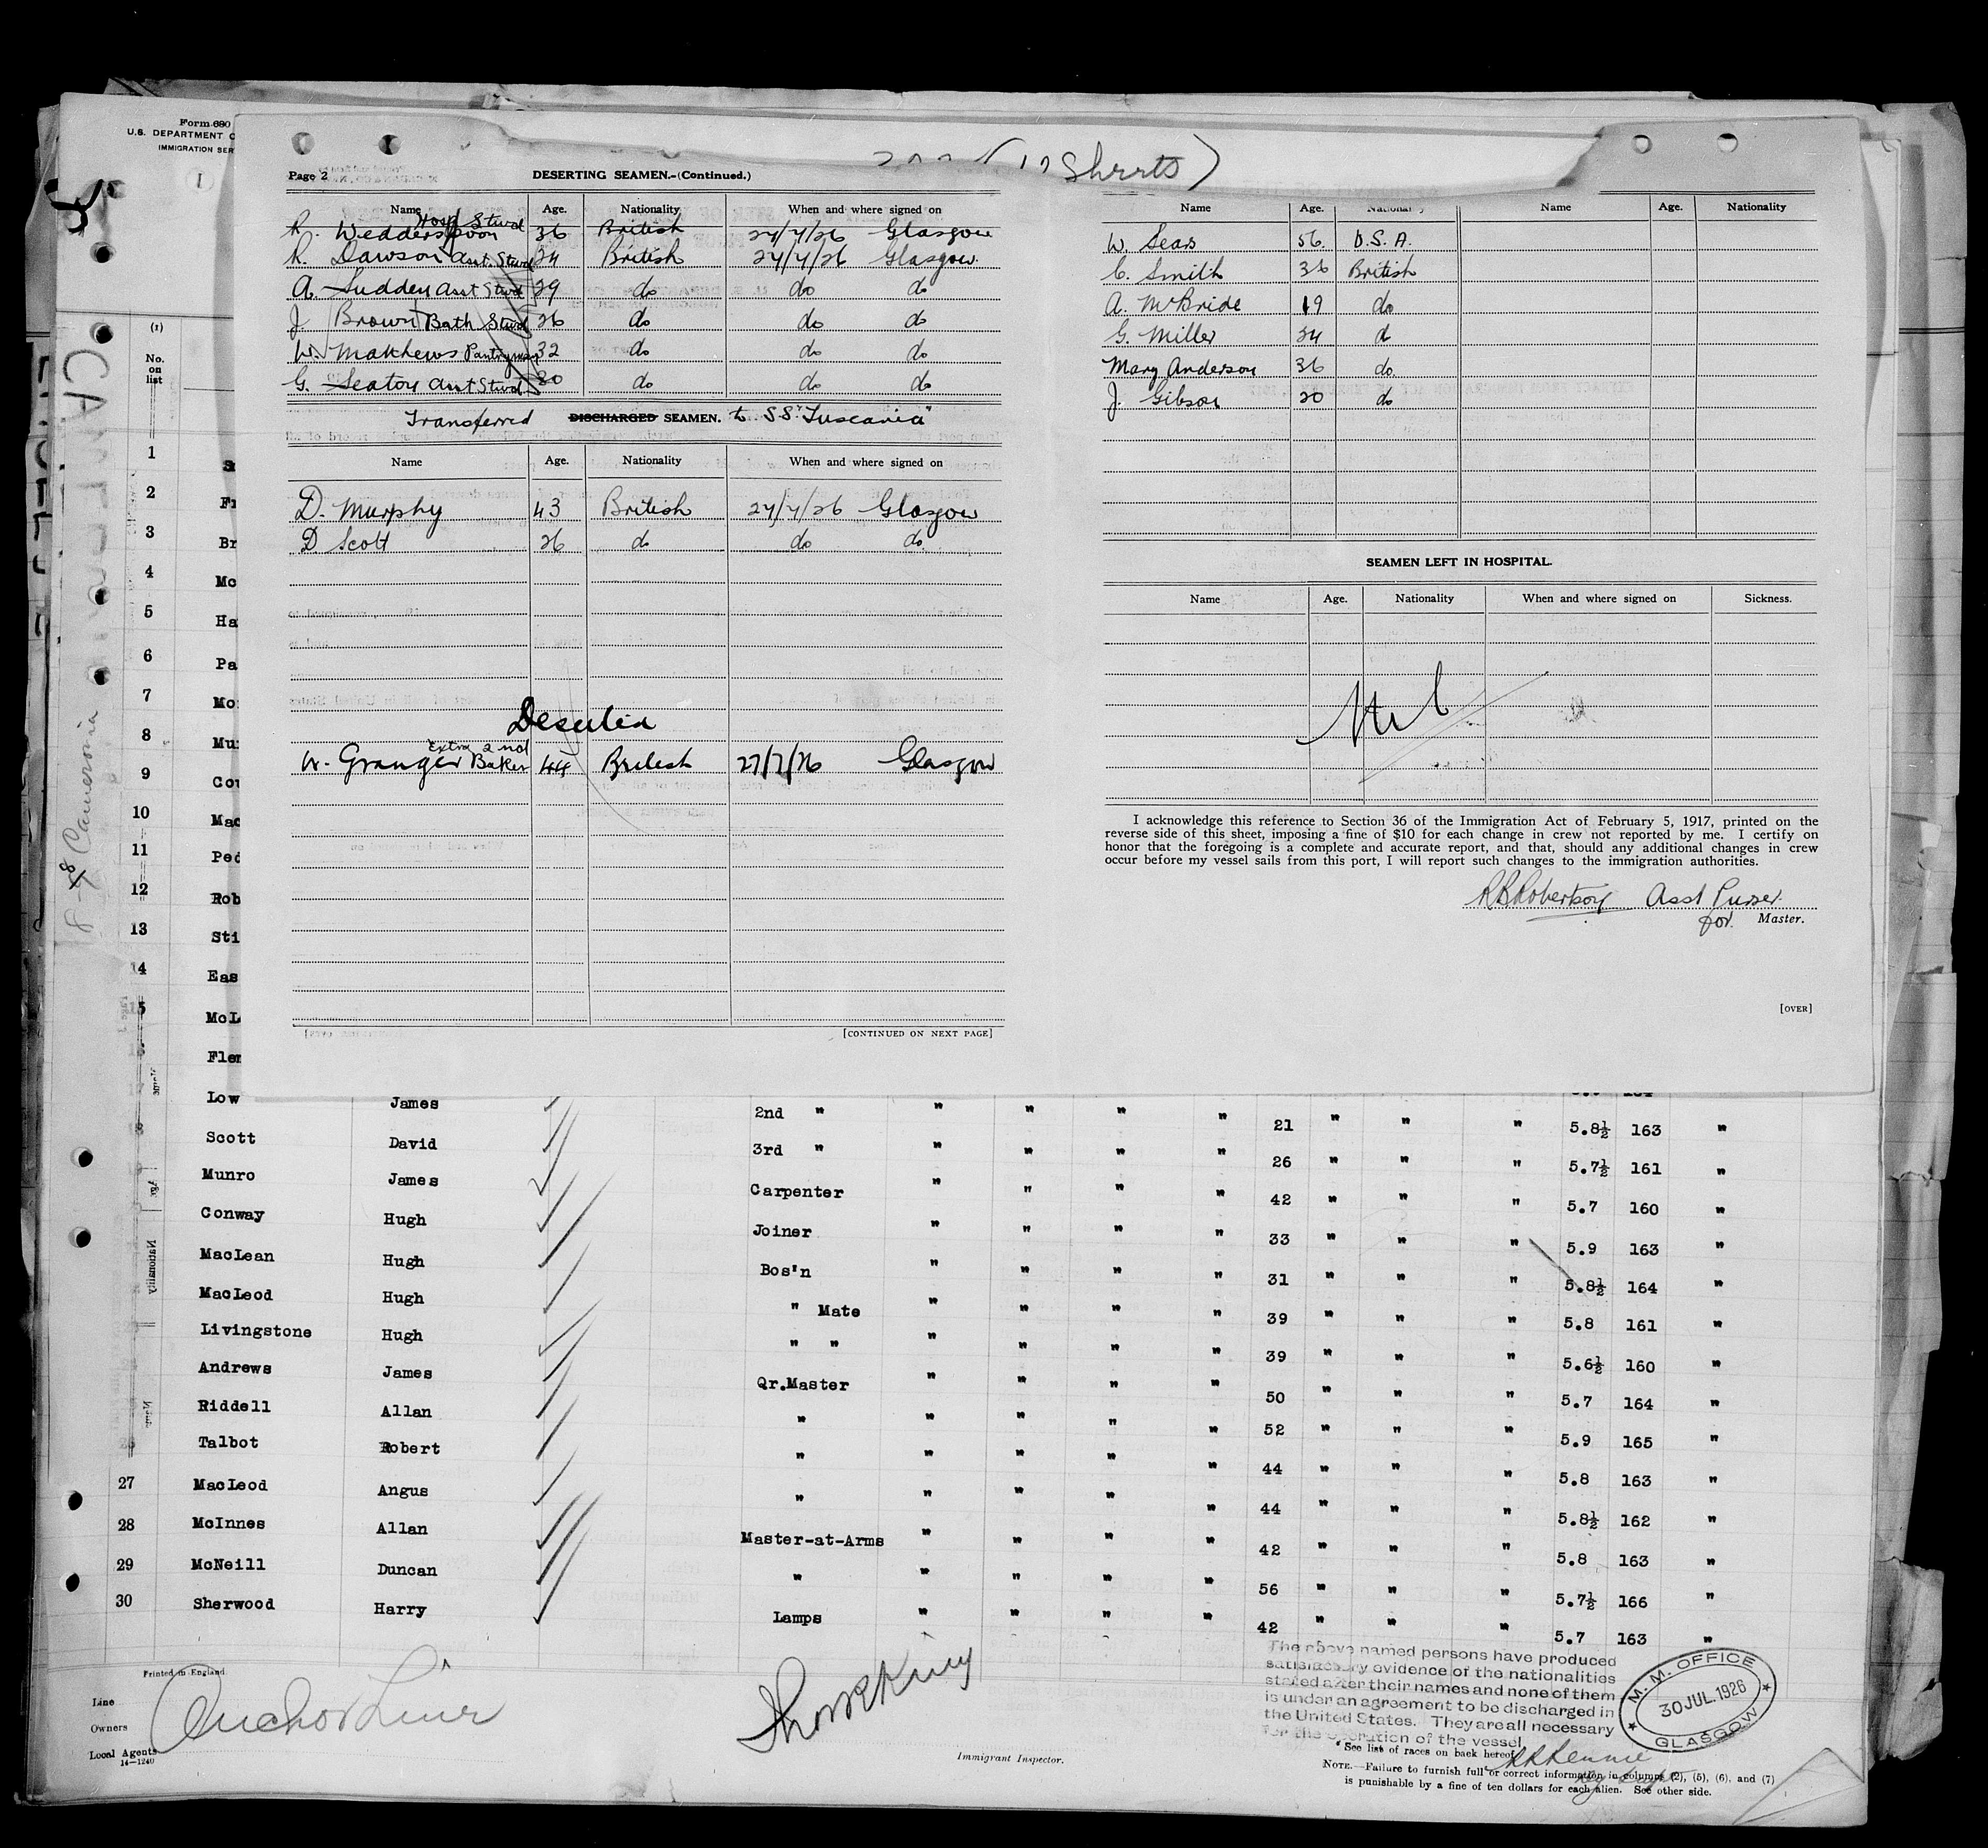 Form 680
U.S. DEPARTMENT O
IMMIGRATION SER
1
Sheets)
Page 2 DESERTING SEAMEN.-(Continued.)
Name Age. Nationality When and where signed on
R. Wedderspoon Hosp Stwd 36 British 27/7/26 Glasgow
R. Dawson Asst. Stwd 24 British 27/7/26 Glasgow.
A. Sudden Asst Stwd 29 do do do
J Brown Bath Stwd 26 do do do
W. Matthews Pantryman 32 do do do
G. Seaton Asst Stwd 20 do do do
Transferred DISCHARGED SEAMEN. to S.S. "Tuscania"
Name Age. Nationality When and where signed on
D. Murphy 43 British 27/7/26 Glasgow
D Scott 26 do do do
W. Granger Extra 2nd Baker 44 British 27/7/26 Glasgow
[CONTINUED ON NEXT PAGE]
Name Age. Nationality Name Age. Nationality
W. Sears 56 U.S.A.
C. Smith 36 British
A. McBride 19 do
G. Miller 24 do
Mary Anderson 36 do
J. Gibson 20 do
SEAMEN LEFT IN HOSPITAL.
Name Age. Nationality When and where signed on Sickness.
Nil
I acknowledge this reference to Section 36 of the Immigration Act of February 5, 1917, printed on the
reverse side of this sheet, imposing a fine of $10 for each change in crew not reported by me. I certify on
honor that the foregoing is a complete and accurate report, and that, should any additional changes in crew
occur before my vessel sails from this port, I will report such changes to the immigration authorities.
R B Robertson Asst Purser
for Master.
[OVER]
CAMERONIA
Cameronia
(1)
No.
on
list
1
2 Fr
3 Br
4 Mc
5 Ha
6 Pa
7 Mo
8 Mu
9 Co
10 Mac
11 Ped
12 Rob
13 Sti
14 Eas
15 McL
Flem
Low James 2nd " " " " " 21 " " " 5.8½ 163 "
Scott David 3rd " " " " " 26 " " " 5.7½ 161 "
Munro James Carpenter " " " " 42 " " " 5.7 160 "
Conway Hugh Joiner " " " " 33 " " " 5.9 163 "
MacLean Hugh Bos'n " " " " 31 " " " 5.8½ 164 "
MacLeod Hugh " Mate " " " " 39 " " " 5.8 161 "
Livingstone Hugh " " " " " " 39 " " " 5.6½ 160 "
Andrews James Qr.Master " " " " 50 " " " 5.7 164 "
Riddell Allan " " " " " 52 " " " 5.9 165 "
Talbot Robert " " " " " 44 " " " 5.8 163 "
27 MacLeod Angus " " " " " 44 " " " 5.8½ 162 "
28 McInnes Allan Master-at-Arms " " " " 42 " " " 5.8 163 "
29 McNeill Duncan " " " " " 56 " " " 5.7½ 166 "
30 Sherwood Harry Lamps " " " " 42 " " " 5.7 163 "
Printed in England
Line
Owners Anchor Line
Local Agents
14-1240
Immigrant Inspector.
The above named persons have produced
satisfactory evidence of the nationalities
stated after their names and none of them
is under an agreement to be discharged in
the United States. They are all necessary
for the operation of the vessel
M. M. OFFICE
30 JUL. 1926
GLASGOW
* See list of races on back hereof
NOTE.—Failure to furnish full or correct information in columns (2), (5), (6), and (7)
is punishable by a fine of ten dollars for each alien. See other side.